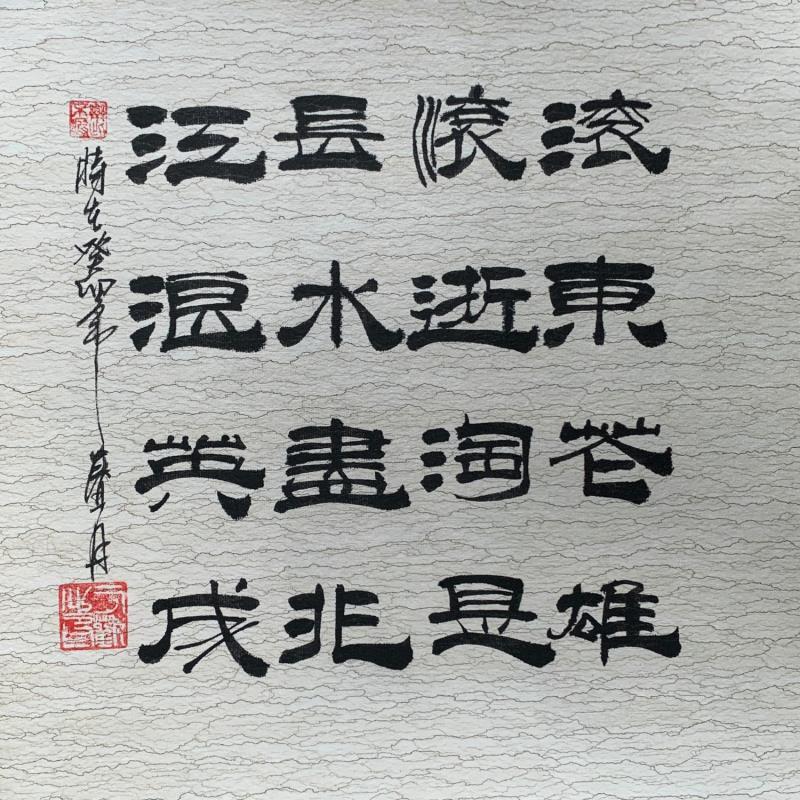 滚滚長江
東逝水浪
花淘盡英
雄是非成
時在癸卯年 月